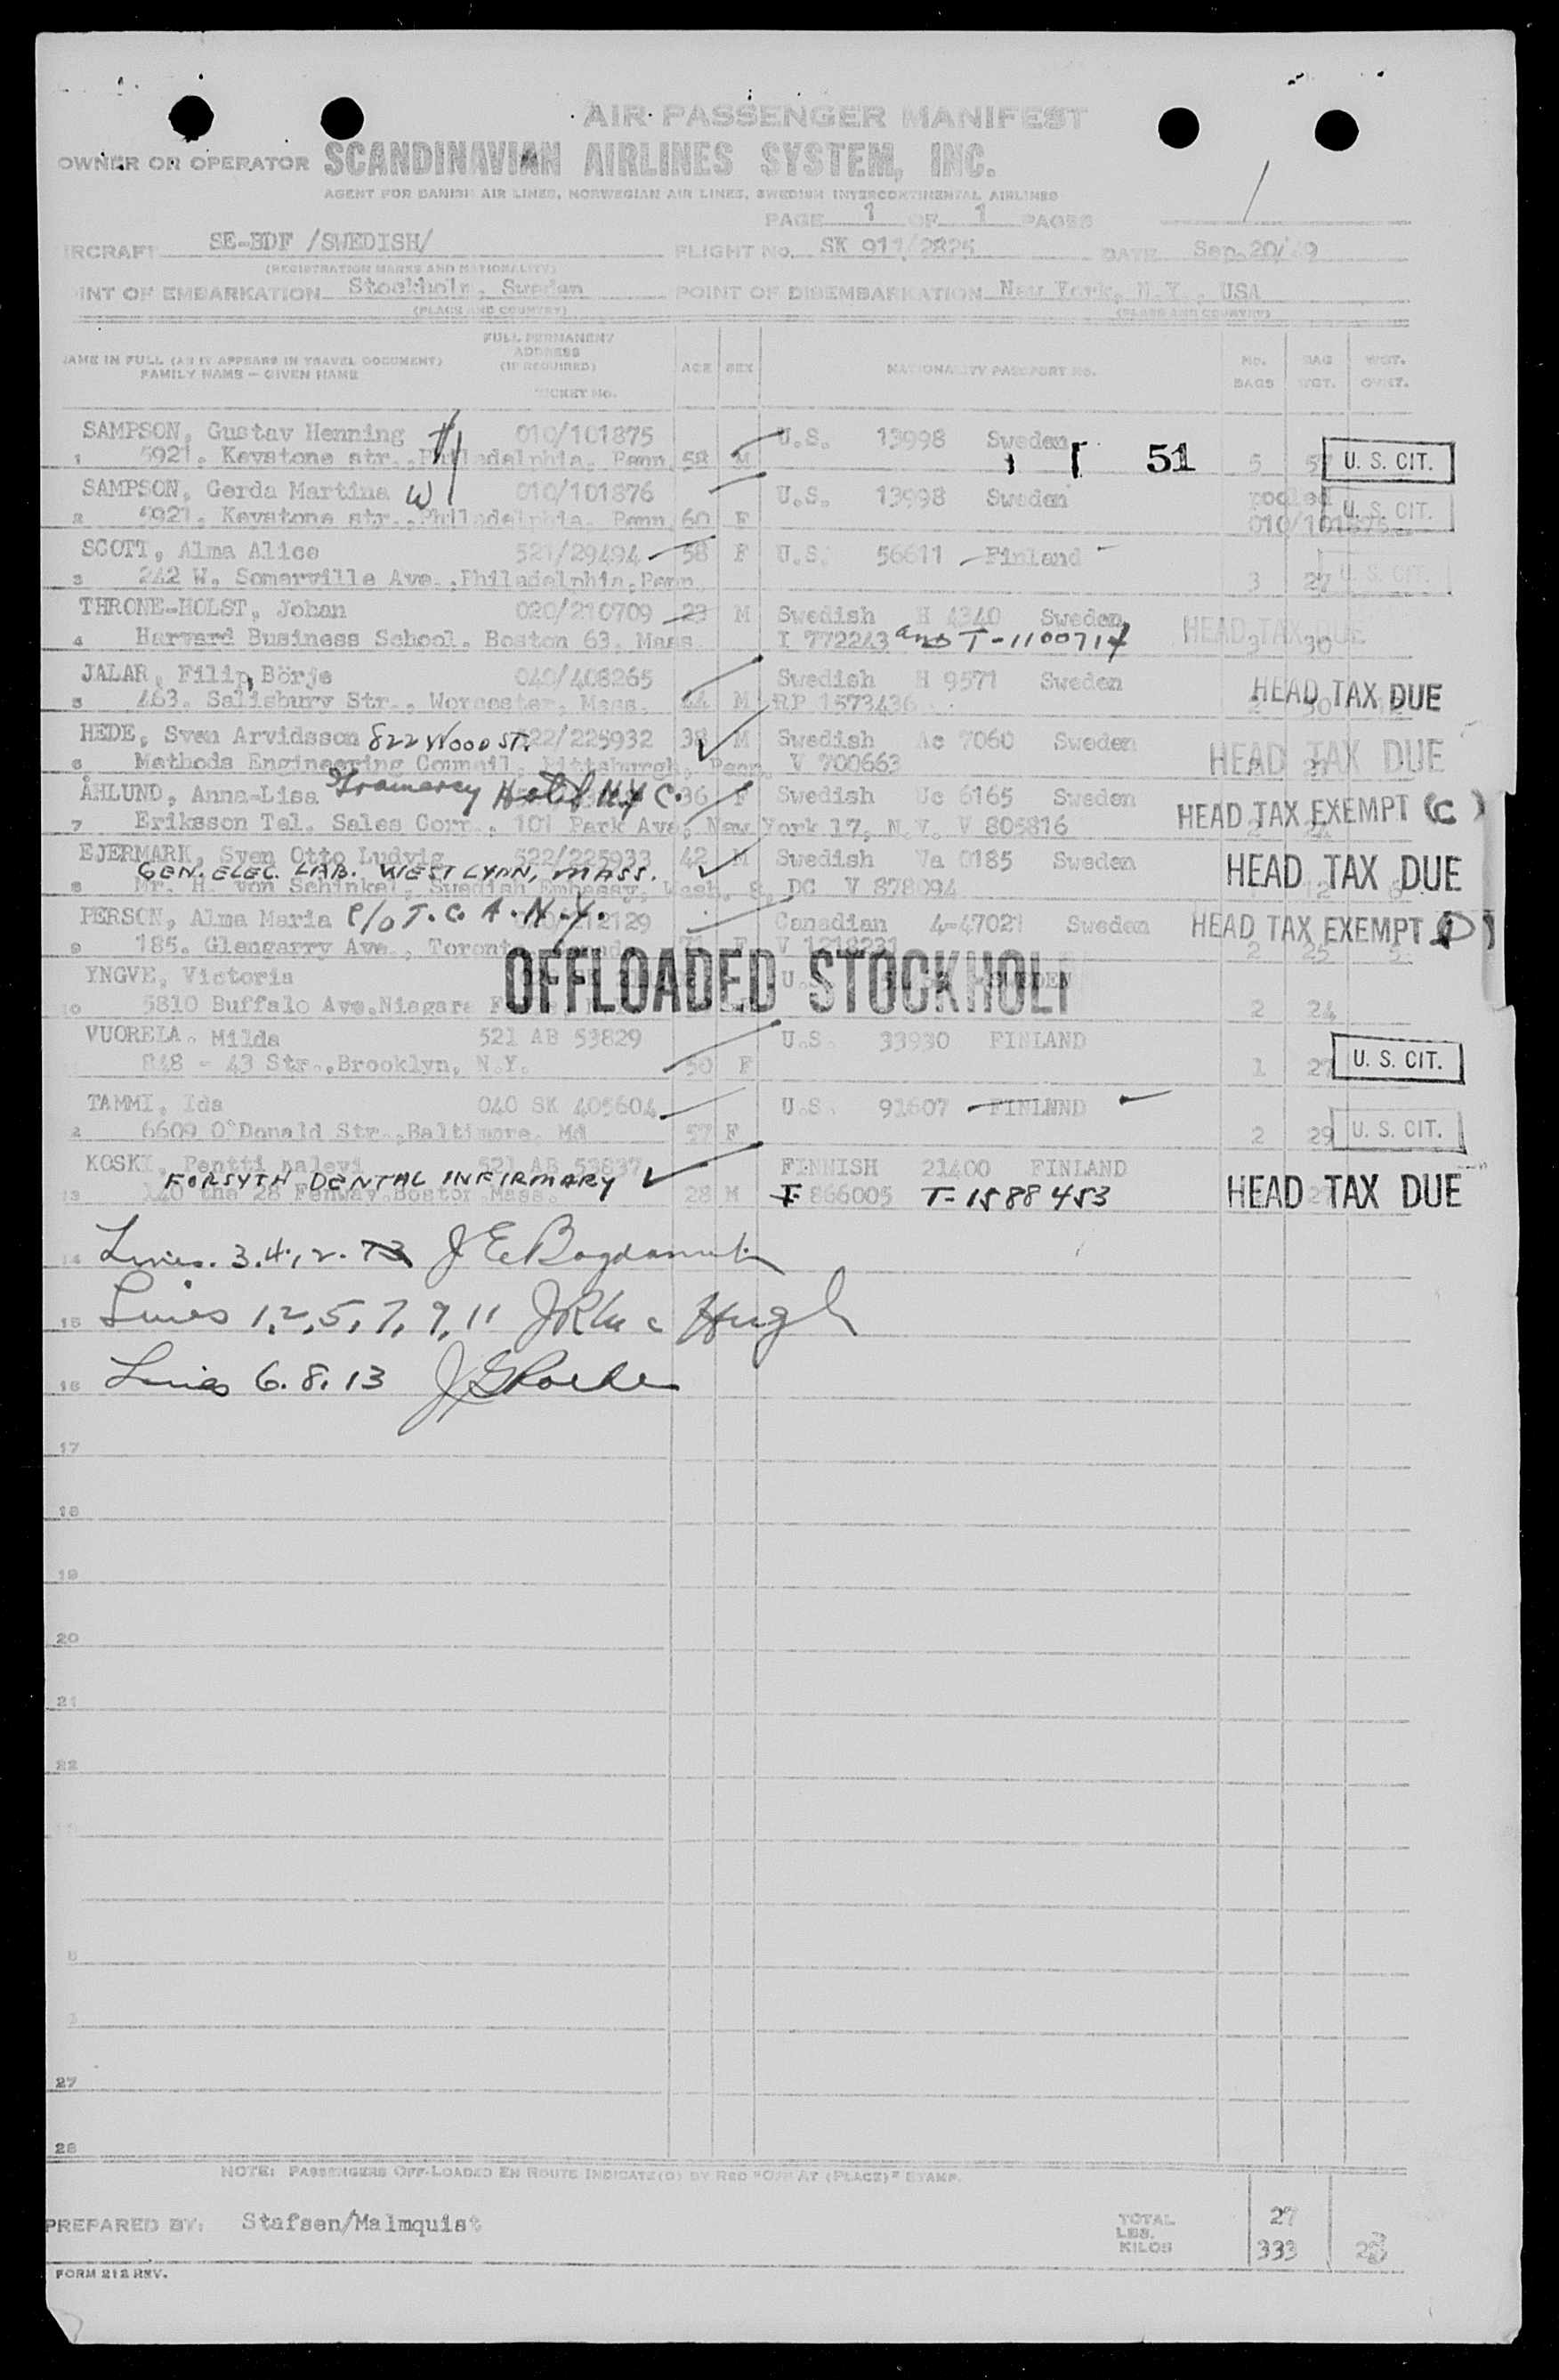 AIR PASSENGER MANIFEST
OWNER OR OPERATOR SCANDINAVIAN AIRLINES SYSTEM, INC.
AGENT FOR DANISH AIR LINES, NORWEGIAN AIR LINES, SWEDISH INTERCONTINENTAL AIRLINES
PAGE 1 OF 1 PAGES
IRCRAFT SE-BDF /SWEDISH/ FLIGHT No. SK 911/2825 DATE Sep.20/49
(REGISTRATION MARKS AND NATIONALITY)
INT OF EMBARKATION Stockholm, Sweden POINT OF DISEMBARKATION New York, N.Y., USA
(PLACE AND COUNTRY) (PLACE AND COUNTRY)
AME IN FULL (AS IT APPEARS IN TRAVEL DOCUMENT) FAMILY NAME – GIVEN NAME
FULL PERMANENT ADDRESS (IF REQUIRED) TICKET No.
AGE SEX NATIONALITY PASSPORT No. No. BAGS BAG WGT. WGT. OVWT.
SAMPSON, Gustav Henning H 010/101875 U.S. 13998 Sweden
1 5921. Keystone str.,Philadelphia, Penn. 58 M 51 5 57 U. S. CIT.
SAMPSON, Gerda Martina W 010/101876 U.S. 13998 Sweden pooled U. S. CIT.
2 5921. Keystone str.,Philadelphia, Penn. 60 F 010/101875
SCOTT, Alma Alice 521/29494 58 F U.S. 56611 Finland
3 242 W. Somerville Ave.,Philadelphia,Penn. 3 27 U. S. CIT.
THRONE-HOLST, Johan 020/210709 23 M Swedish H 4340 Sweden HEAD TAX DUE
4 Harvard Business School. Boston 63. Mass. I 772243 and T-1100714 3 30
JALAR, Filip Börje 040/408265 Swedish H 9571 Sweden HEAD TAX DUE
5 463. Salisbury Str., Worcester, Mass. 44 M RP 1573436 30
HEDE, Sven Arvidsson 822 WOOD ST. 522/225932 38 M Swedish Ac 7060 Sweden HEAD TAX DUE
6 Methods Engineering Council, Pittsburgh, Penn. V 700663
ÅHLUND, Anna-Lisa Gramercy Hotel N.Y.C. 36 F Swedish Uc 6165 Sweden HEAD TAX EXEMPT (C)
7 Eriksson Tel. Sales Corp., 101 Park Ave, New York 17, N.Y. V 805816
EJERMARK, Sven Otto Ludvig 522/225933 42 M Swedish Va 0185 Sweden HEAD TAX DUE
GEN. ELEC. LAB. WEST LYNN, MASS.
8 Mr. H. von Schinkel, Swedish Embassy, Wash. 8, DC V 878094 12
PERSON, Alma Maria c/o T.C.A. N.Y. 212129 Canadian 4-47021 Sweden HEAD TAX EXEMPT (D)
9 185. Glengarry Ave., Toronto 71 F V 1218231 2 25 5
YNGVE, Victoria OFFLOADED STOCKHOLM U. SWEDEN
10 5810 Buffalo Ave.Niagara 2 24
VUORELA, Milda 521 AB 53829 U.S. 33930 FINLAND
848 - 43 Str.,Brooklyn, N.Y. 50 F 1 27 U. S. CIT.
TAMMI, Ida 040 SK 405604 U.S. 91607 FINLAND
2 6609 O'Donald Str.,Baltimore, Md 57 F 2 29 U. S. CIT.
KOSKI, Pentti Kalevi 521 AB 53837 FINNISH 21400 FINLAND
FORSYTH DENTAL INFIRMARY
13 140 the 28 Fenway,Boston Mass. 28 M F 866005 T-1588453 HEAD TAX DUE
14 Lines. 3.4.12.
15 Lines 1,2,5,7,9,11
16 Lines 6.8.13
17
18
19
20
21
22
27
28
NOTE: PASSENGERS OFF-LOADED EN ROUTE INDICATE(D) BY RED "OFF AT (PLACE)" STAMP.
PREPARED BY: Stafsen/Malmquist TOTAL LBS. KILOS 27 333
FORM 212 REV.